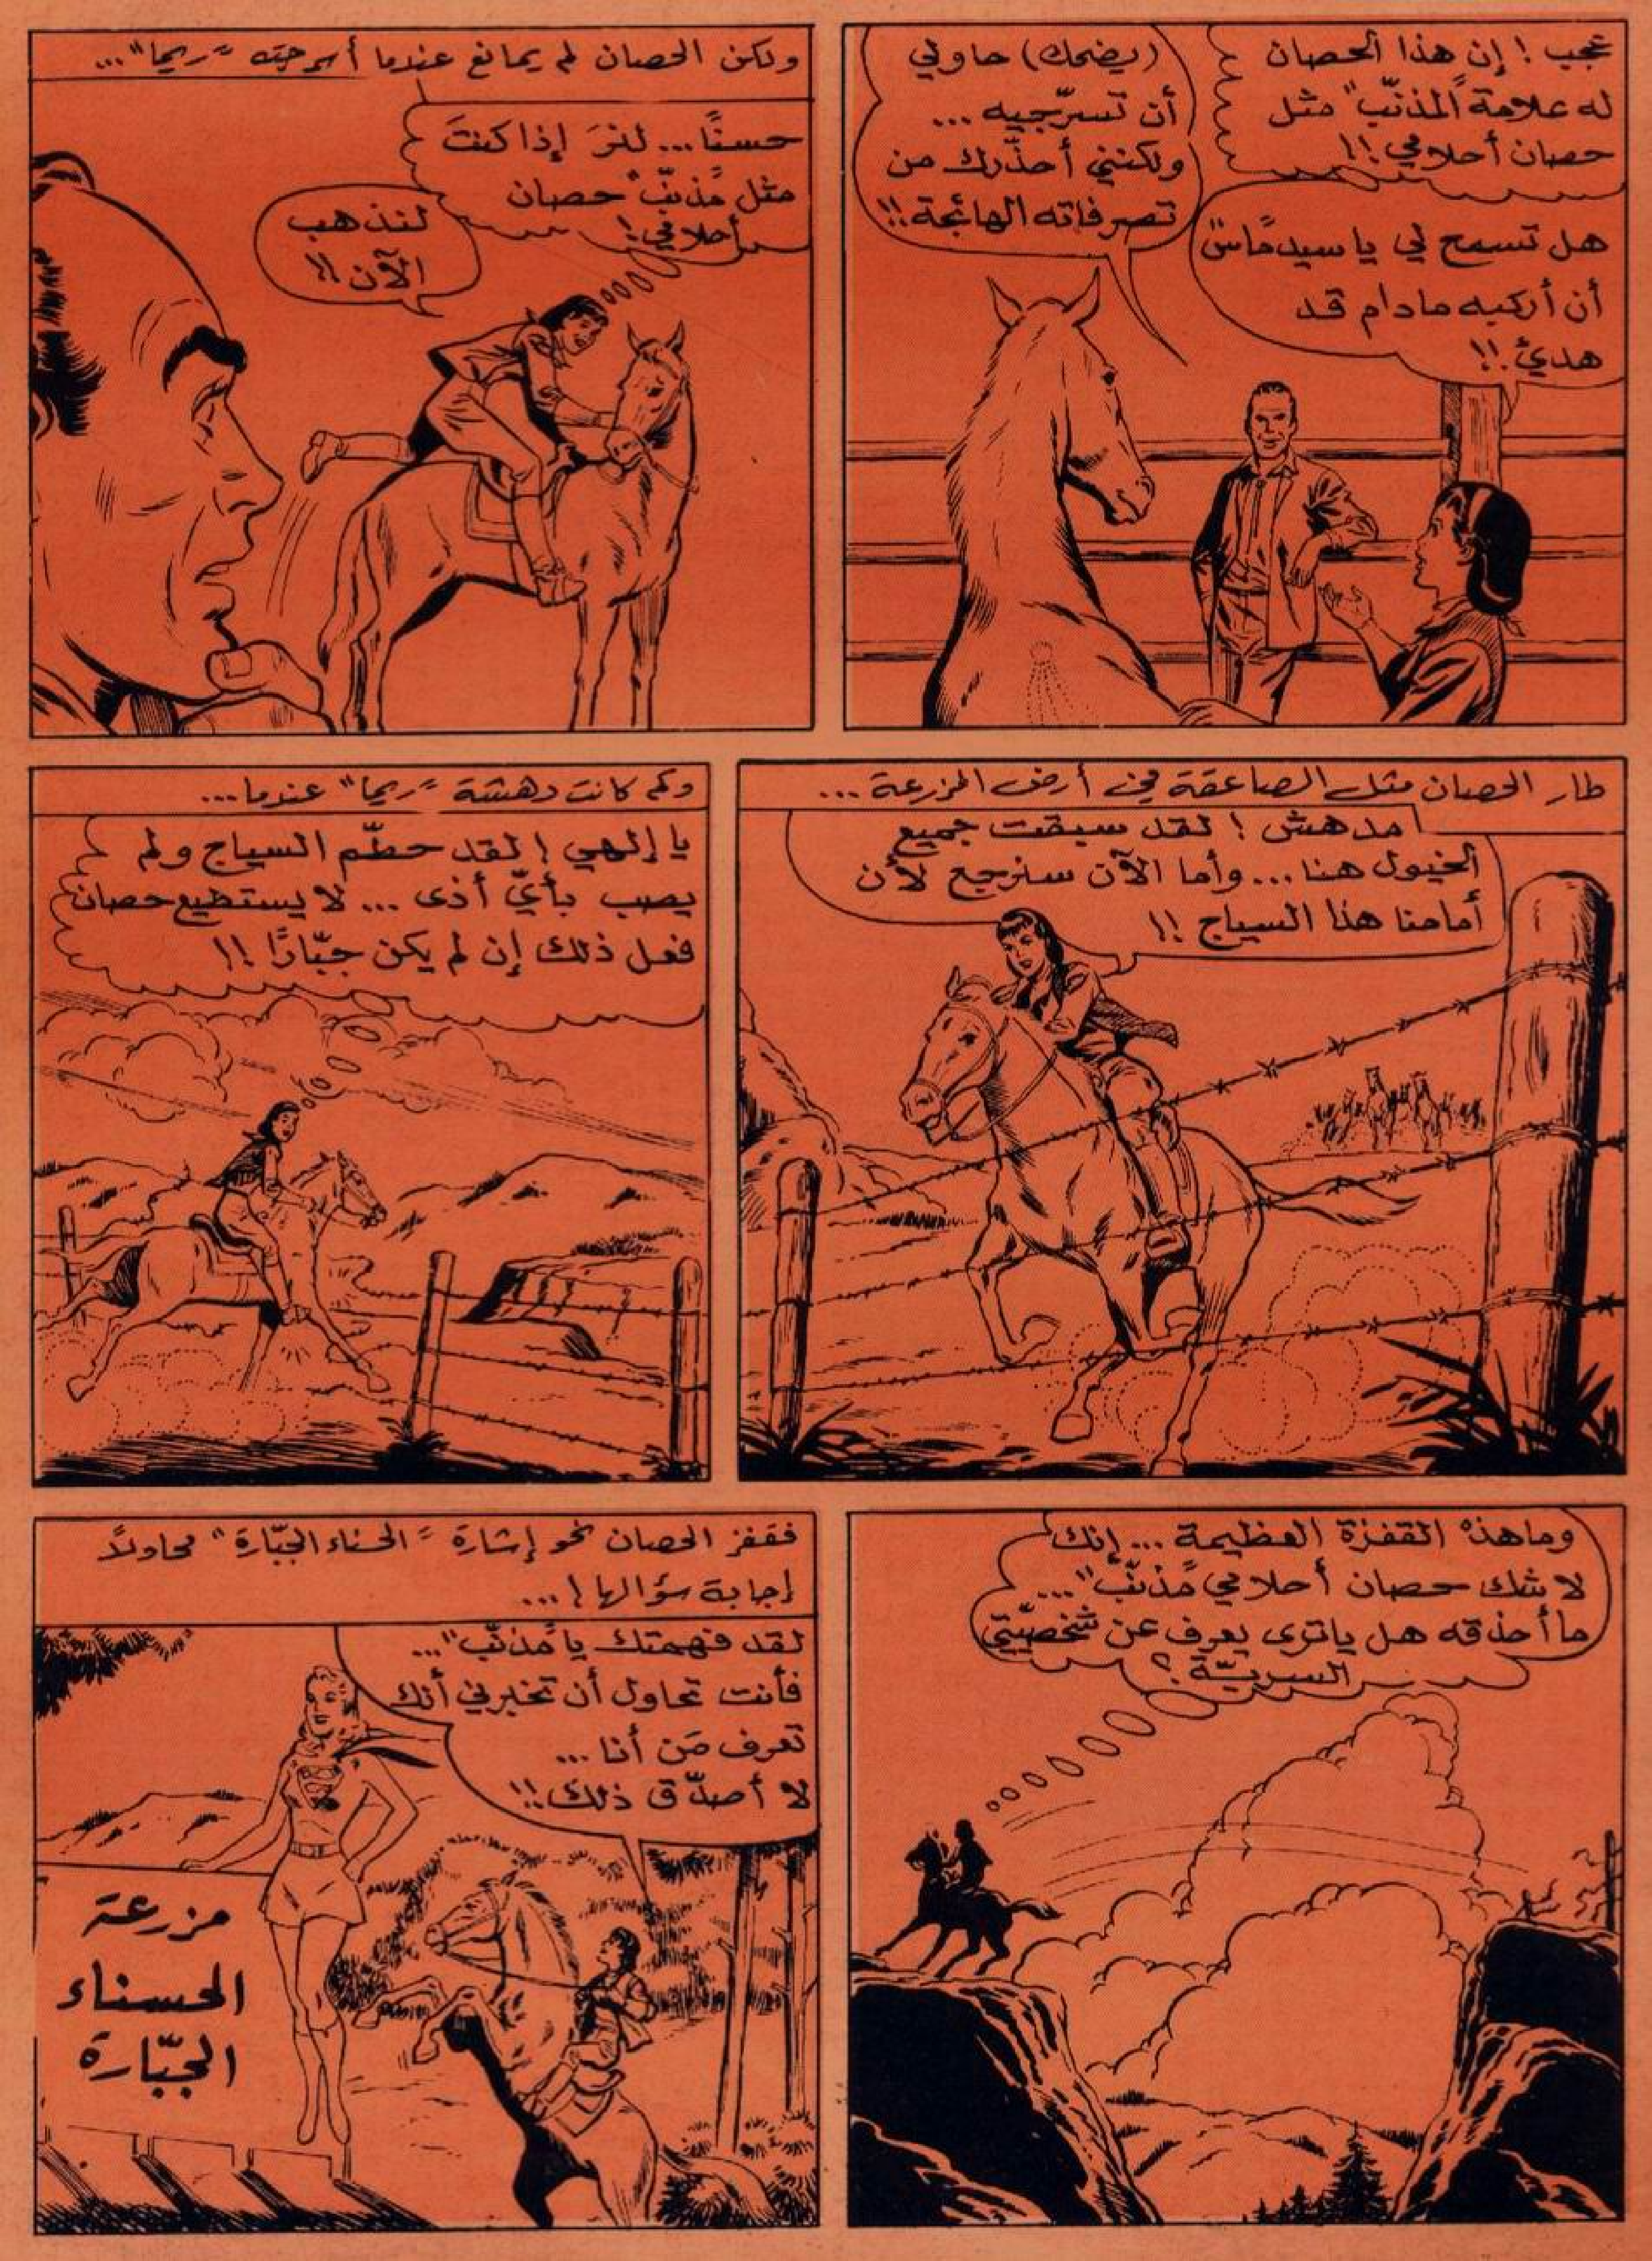 عجب ! إن هذا الحصان
له علامة "المذنّب" مثل
حصان أحلامي !!
(يضحك) حاولي
أن تسرّجيه ...
ولكنني أحذّرك من
تصرفاته الهائجة !!
هل تسمح لي يا سيد "ماس"
أن أركبه مادام قد
هدئ !!
ولكن الحصان لم يمانع عندما أسرجته "ريما" ...
حسنًا ... لنرَ إذا كنتَ
مثل "مذنّب" حصان
أحلامي !
لنذهب
الآن !!
طار الحصان مثل الصاعقة في أرض المزرعة ...
مدهش ! لقد سبقت جميع
الخيول هنا ... وأما الآن سنرجع لأن
أمامنا هذا السياج !!
وكم كانت دهشة "ريما" عندما ...
يا إلهي ! لقد حطّم السياج ولم
يصب بأيّ أذى ... لا يستطيع حصان
فعل ذلك إن لم يكن جبّارًا !!
وما هذه القفزة العظيمة ... إنك
لا شك حصان أحلامي "مذنّب" ...
ما أحذقه هل ياترى يعرف عن شخصيّتي
السريّة ؟
فقفز الحصان نحو إشارة "الحسناء الجبّارة" محاولاً
إجابة سؤالها ! ...
لقد فهمتك يا "مذنّب" ...
فأنت تحاول أن تخبرني أنك
تعرف مَن أنا ...
لا أصدّق ذلك !!
مزرعة
الحسناء
الجبّارة